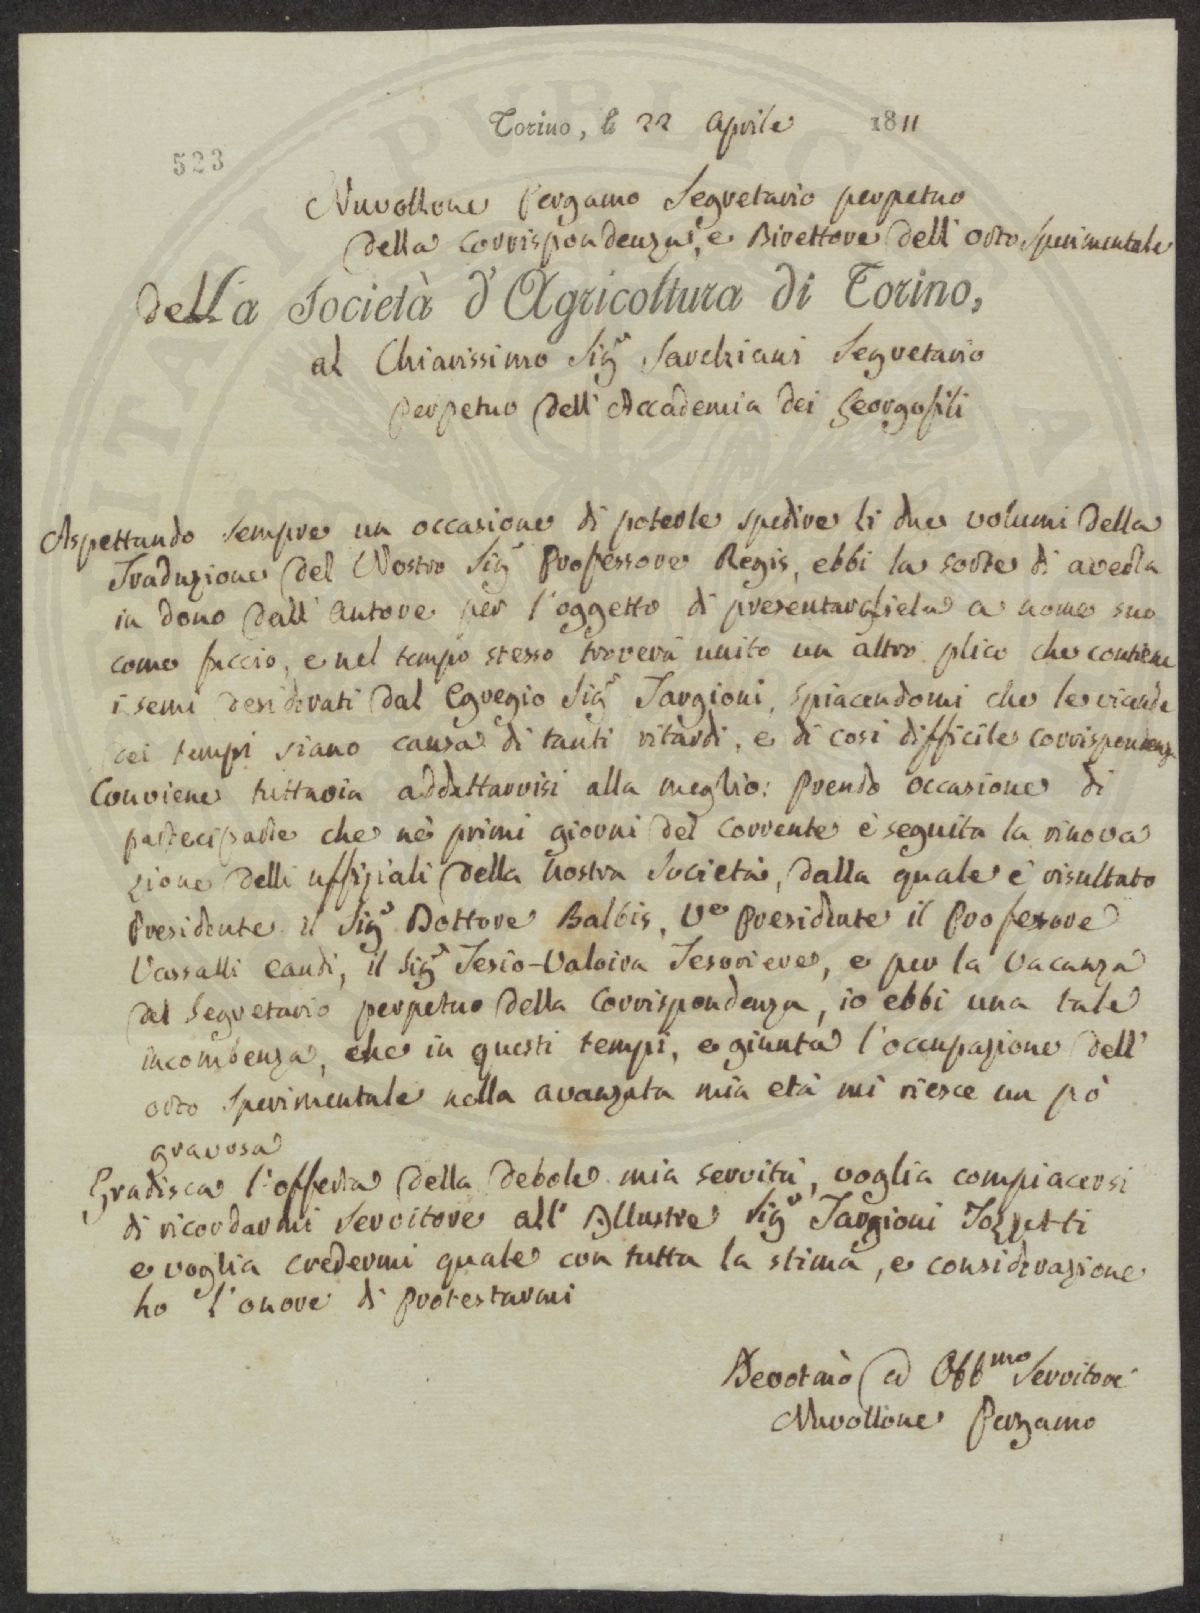 Torino, li 22 Aprile 1811
523
Nuvollone Pergamo Segretario perpetuo
della Corrispondenza, e Direttore dell'orto Sperimentale
della Società d'Agricoltura di Torino,
al Chiarissimo Sig.r Sarchiani Segretario
perpetuo dell'Accademia dei Georgofili
Aspettando sempre un occasione di poterle spedire li due volumi della
Traduzione del Nostro Sig.r Professore Regis, ebbi la sorte di averla
in dono dall'autore per l'oggetto di presentargliela a nome suo
come faccio, e nel tempo stesso troverà unito un altro plico che contiene
i semi desiderati dal Egregio Sig.r Targioni, spiacendomi che le vicende
dei tempi siano causa di tanti ritardi, e di cosi difficile corrispondenza
Conviene tuttavia addattarvisi alla meglio: prendo occasione di
parteciparle che nè primi giorni del corrente è seguita la rinova
zione delli uffiziali della nostra Società, dalla quale è risultato
Presidente il Sig.r Dottore Balbis, V.e Presidente il Professore
Vassalli Eandi, il Sig.r Tesio-Valoira Tesoriere, e per la vacanza
del Segretario perpetuo della Corrispondenza, io ebbi una tale
incombenza, che in questi tempi, e giunta l'occupazione dell'
orto Sperimentale nella avanzata mia età mi riesce un pò
gravosa
Gradisca l'offerta della debole mia servitù, voglia compiacersi
di ricordarmi Servitore all'Illustre Sig.r Targioni Tozzetti
e voglia credermi quale con tutta la stima, e considerazione
ho l'onore di protestarmi
Devotmo ed Obb.mo Servitore
Nuvollone Pergamo